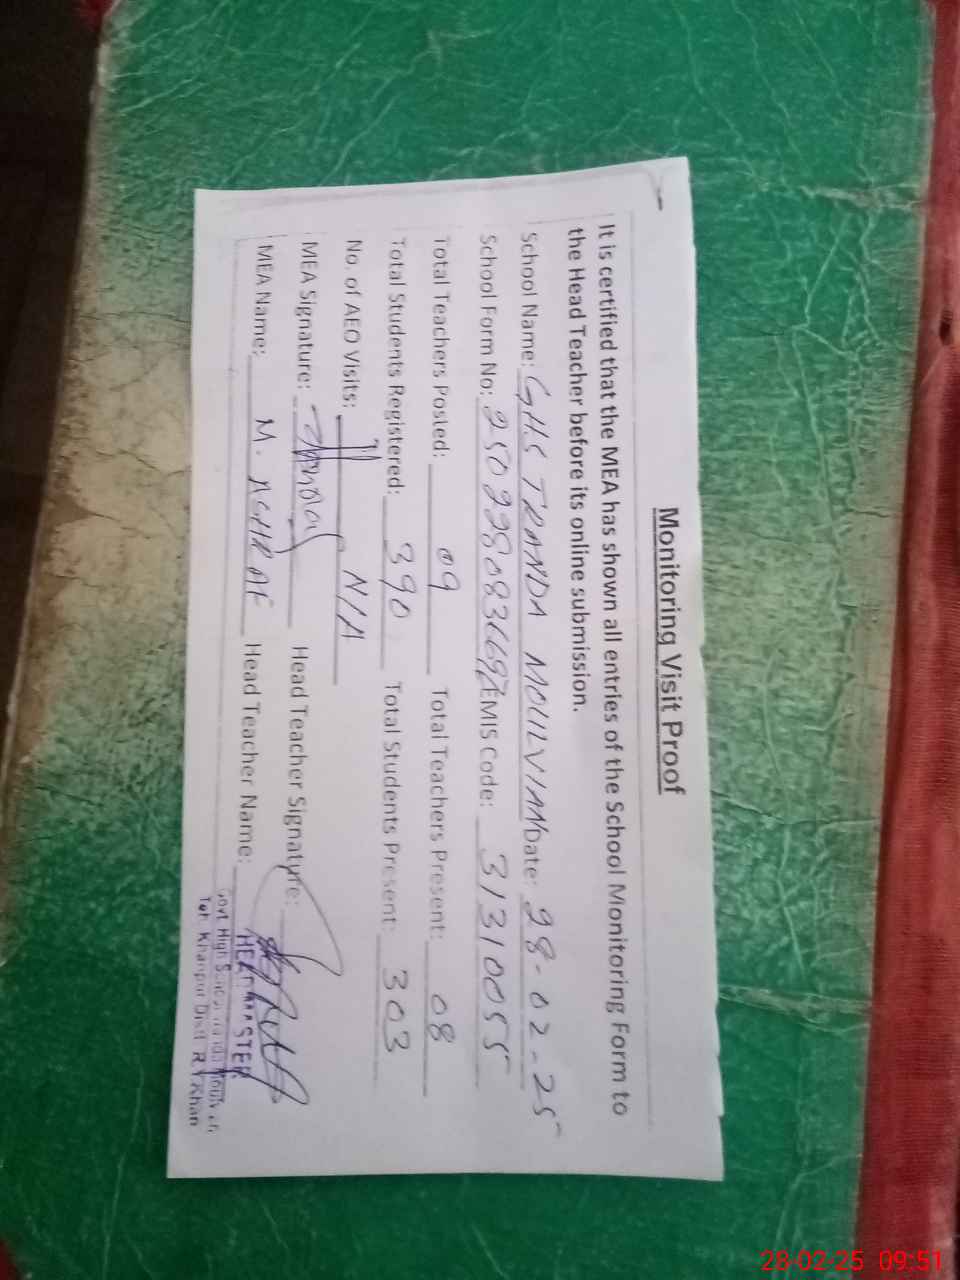 Monitoring Visit Proof
It is certified that the MEA has shown all entries of the School Monitoring Form to
the Head Teacher before its online submission.
School Name: GHS TRANDA MOULVIAN Date: 28-02-25
School Form No: EMIS Code: 31310055
Total Teachers Posted: 09 Total Teachers Present: 08
Total Students Registered: 390 Total Students Present: 303
No. of AEO Visits: N/A
MEA Signature: Head Teacher Signature:
MEA Name: M. ASHRAF Head Teacher Name:
HEADMASTER
Govt. High School Tranda Moulvian
Teh. Khanpur Distt. R.Y.Khan
28-02-25 09:51